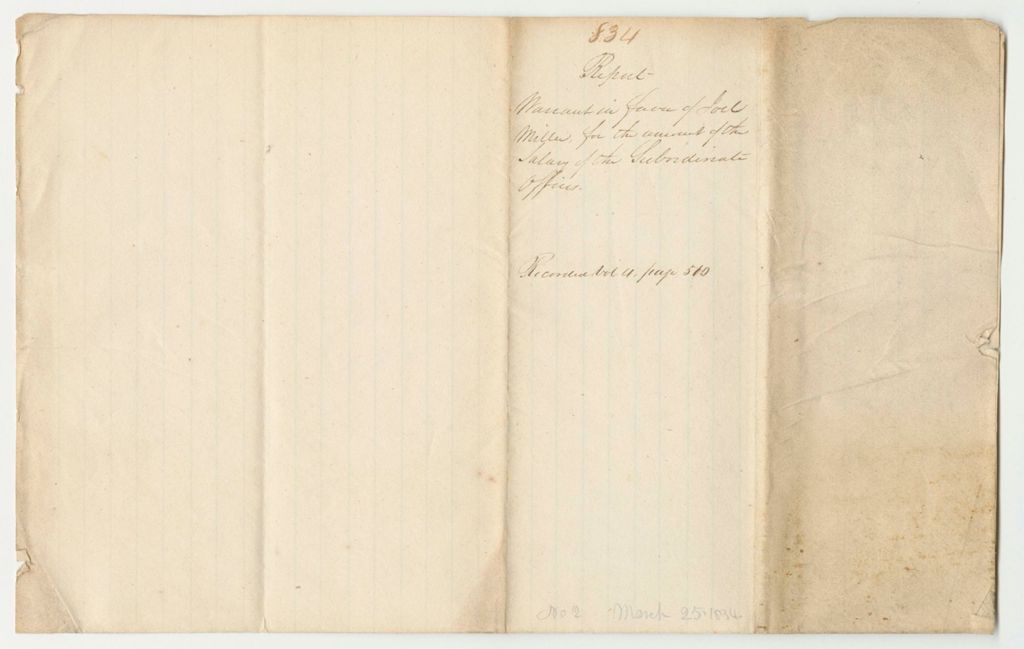 834
Report
Warrant in favor of Joel
Miller, for the amount of the
Salary of the Subordinate
Officers.
Recorded Vol 4. page 510
No 2 March 25. 1834